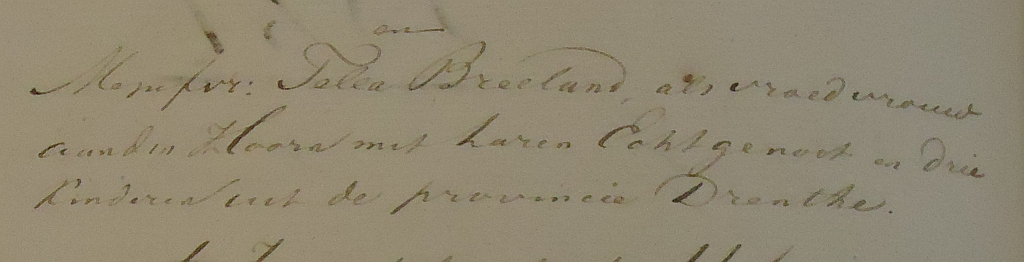 en
Mejufvr: Tella Breeland, als vroedvrouw
aan den Hoorn met haren Echtgenoot en drie
kinderen uit de provincie Drenthe.